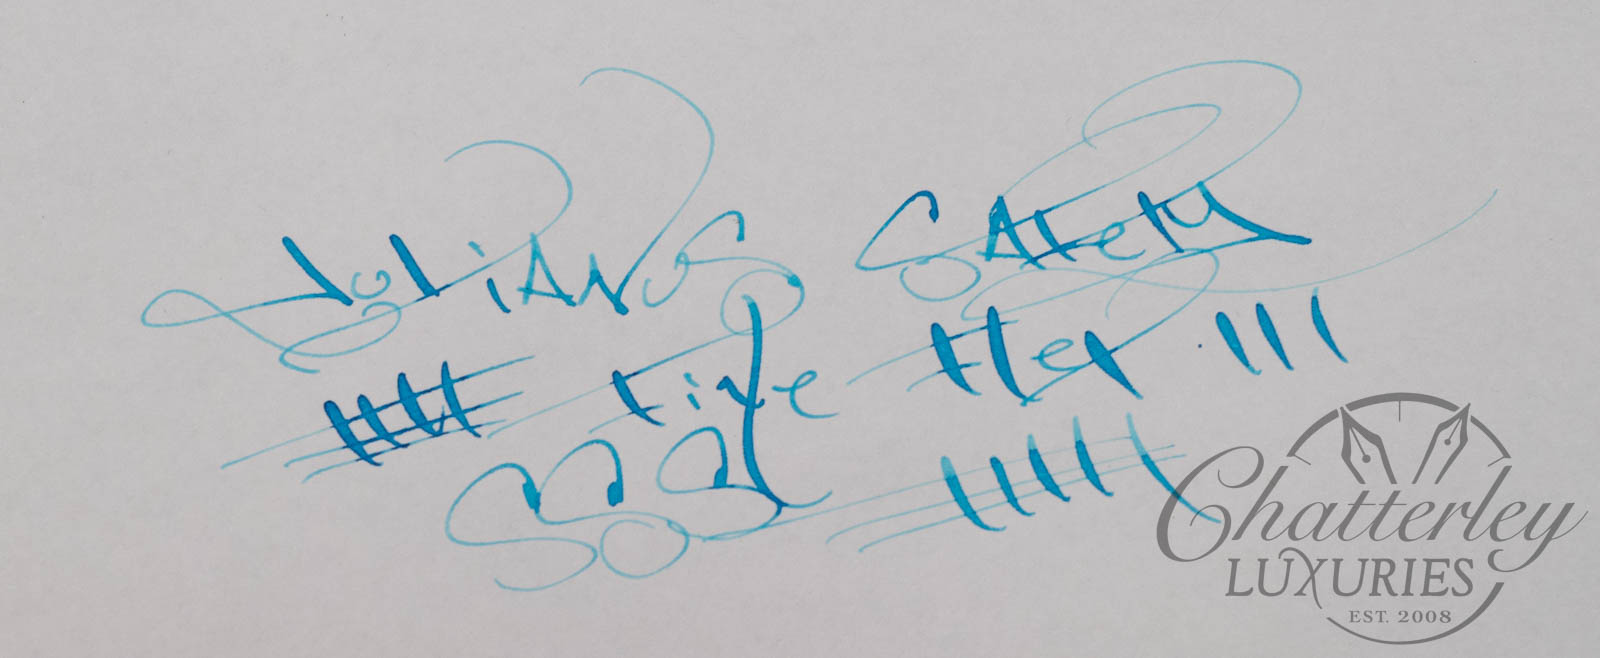 JULIANS SAFETY
FINE FLEX
SOS
Chatterley
LUXURIES
EST. 2008